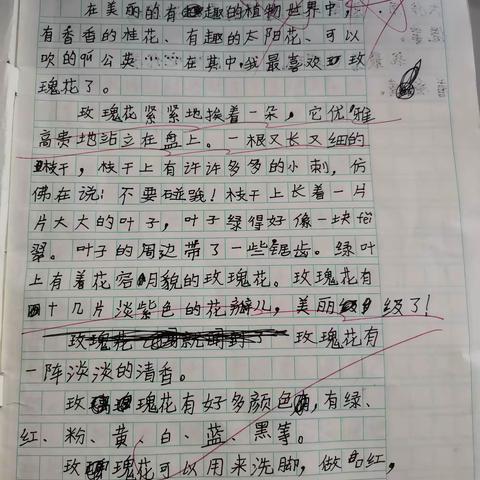 在美丽的有趣的植物世界中，
有香香的桂花、有趣的太阳花、可以
吹的公英……在其中，我最喜欢玫
瑰花了。
玫瑰花紧紧地挨着一朵，它优雅
高贵地站立在盘上。一根又长又细的
枝干，枝干上有许许多多的小刺，仿
佛在说：不要碰我！枝干上长着一片
片大大的叶子，叶子绿得好像一块翡
翠。叶子的周边带了一些锯齿。绿叶
上有着花容月貌的玫瑰花。玫瑰花有
十几片淡紫色的花瓣儿，美丽级了！
玫瑰花有
一阵淡淡的清香。
玫瑰花有好多颜色，有绿、
红、粉、黄、白、蓝、黑等。
玫瑰花可以用来洗脚，做口红，